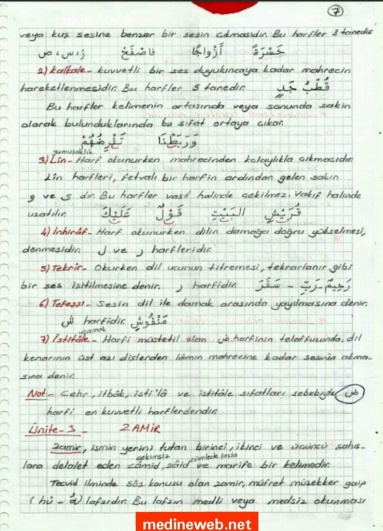 7
veya kuş sesine benzer bir sesin çıkmasıdır. Bu harfler 3 tanedir
ز، س، ص فَاصْفَحْ أَزْوَاجًا حَسْرَةً
2) Kalkale - kuvvetli bir ses duyuluncaya kadar mahrecin
harekellenmesidir. Bu harfler 5 tanedir. قُطْبُ جَدٍ
Bu harfler kelimenin ortasında veya sonunda sakin
olarak bulunduklarında bu sıfat ortaya çıkar.
وَرَبَطْنَا
yumuşaklık
3) Lin - Harf okunurken mahrecinden kolaylıkla çıkmasıdır.
Lin harfleri, fetvalı bir harfin ardından gelen sakin
و ve ى dir. Bu harfler vasıl halinde çekilmez. Vakıf halinde
uzatılır. عَلَيْكَ قَوْلٌ الْبَيْتِ قُرَيْشٍ
4) İnhirâf - Harf okunurken dilin damağa doğru yükselmesi,
denmesidir. ل ve ر harfleridir.
5) Tekrir - Okurken dil ucunun titremesi, tekrarlanır gibi
bir ses işitilmesine denir. ر harfidir. رَحِيمٌ - رَبِّ - سَقَرَ
6) Tefeşşi - Sesin dil ile damak arasında yayılmasına denir.
ش harfidir. مَنْفُوشِ
uzamak
7) İstitâle - Harfi müstetil olan ض harfinin telaffuzunda, dil
kenarının üst azı dişlerden lâmın mahrecine kadar sesin akma-
sına denir.
Not - Cehr, ıtbâk, isti'lâ ve istitâle sıfatları sebebiyle, ض
harfi en kuvvetli harflerdendir.
Ünite - 3 - ZAMİR
Zamir, ismin yerini tutan birinci, ikinci ve üçüncü şahıs-
lara delalet eden câmid, zâid ve marife bir kelimedir.
Tecvid ilminde söz konusu olan zamir, müfret müzekker gaip
(hû - ه) lafzıdır. Bu lafzın medli veya medsiz okunması
medineweb.net